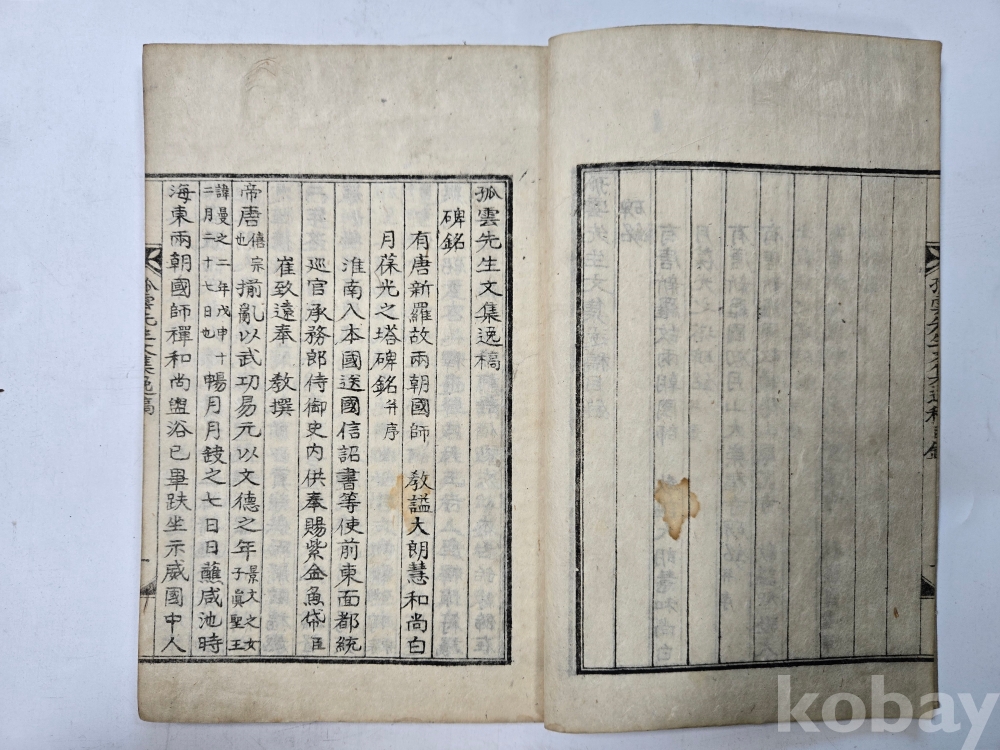 孤雲先生文集逸稿
碑銘
有唐新羅故兩朝國師 教謚大朗慧和尚白
月葆光之塔碑銘 并序
淮南入本國送國信詔書等使前東面都統
巡官承務郎侍御史內供奉賜紫金魚帒臣
崔致遠奉 教撰
帝唐僖宗也揃亂以武功易元以文德之年景文之女子眞聖王
諱曼之二年戊申十二月二十七日也暢月月鈌之七日日蘸咸池時
海東兩朝國師禪和尚盥浴已畢趺坐示威國中人
孤雲先生文集逸稿
一
kobay